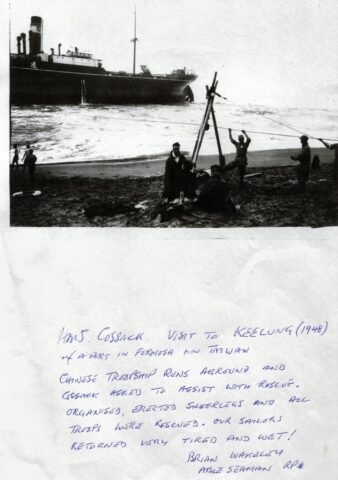 HMS. COSSACK. VISIT TO KEELUNG (1948)
A PORT IN FORMOSA NOW TAIWAN
CHINESE TROOPSHIP RUNS AGROUND AND
COSSACK ASKED TO ASSIST WITH RESCUE.
ORGANISED, ERECTED SHEERLEGS AND ALL
TROOPS WERE RESCUED. OUR SAILORS
RETURNED VERY TIRED AND WET!
BRIAN WAKELEY
ABLE SEAMAN